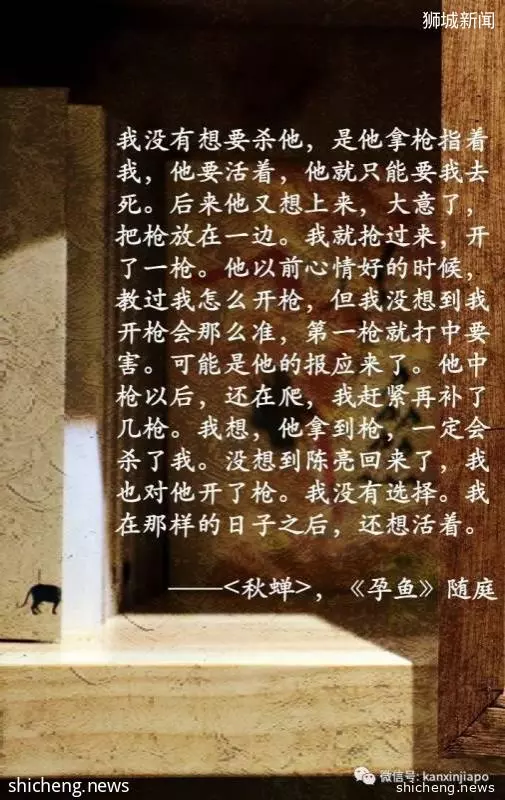 狮城新闻
我没有想要杀他，是他拿枪指着
我，他要活着，他就只能要我去
死。后来他又想上来，大意了，
把枪放在一边。我就抢过来，开
了一枪。他以前心情好的时候，
教过我怎么开枪，但我没想到我
开枪会那么准，第一枪就打中要
害。可能是他的报应来了。他中
枪以后，还在爬，我赶紧再补了
几枪。我想，他拿到枪，一定会
杀了我。没想到陈亮回来了，我
也对他开了枪。我没有选择。我
在那样的日子之后，还想活着。
——<秋蝉>，《孕鱼》随庭
微信号: kanxinjiapo
shicheng.news
shicheng.news